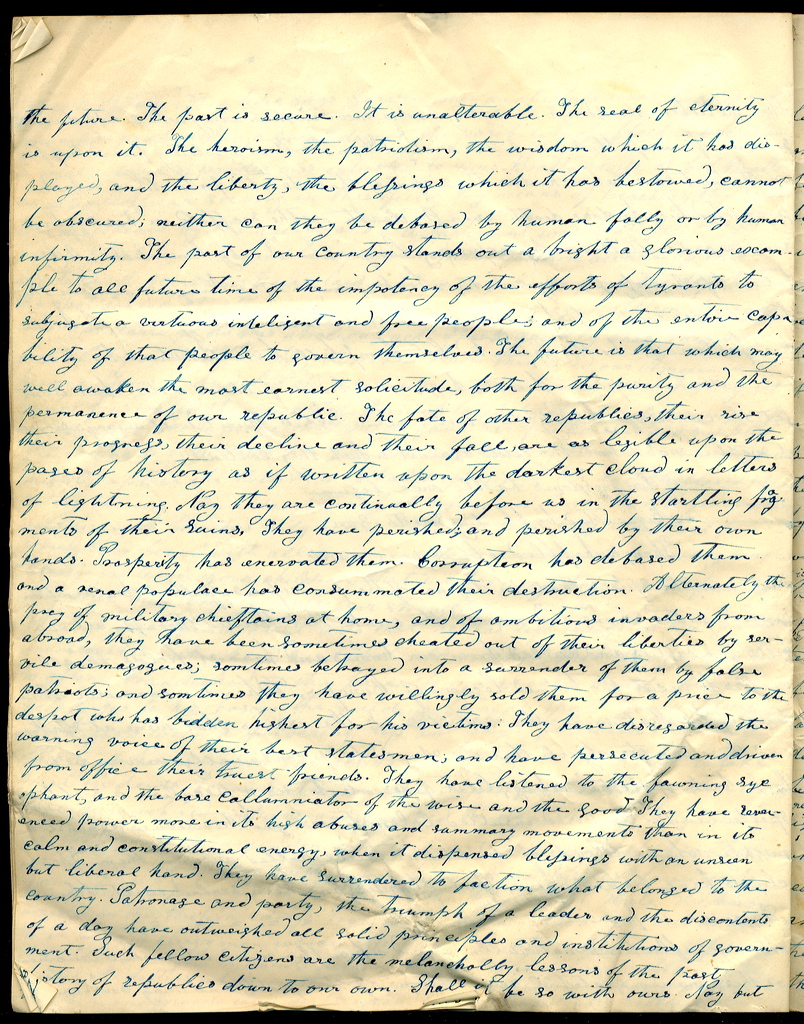 the future. The past is secure. It is unalterable. The seal of eternity
is upon it. The heroism, the patriotism, the wisdom which it has dis-
played, and the liberty, the blessings which it has bestowed, cannot
be obscured; neither can they be debased by human folly or by human
infirmity. The past of our country stands out a bright a glorious exam-
ple to all future time of the impotency of the efforts of tyrants to
subjugate a virtuous inteligent and free people; and of the entire capa
bility of that people to govern themselves. The future is that which may
well awaken the most earnest solicitude, both for the purity and the
permanence of our republic. The fate of other republics, their rise
their progress, their decline and their fall, are as legible upon the
pages of history as if written upon the darkest cloud in letters
of lightning. Nay they are continually before us in the startling frag
ments of their ruins. They have perished; and perished by their own
hands. Prosperity has enervated them. Corruption has debased them
and a venal populace has consummated their destruction. Alternately the
prey of military chieftains at home, and of ambitious invaders from
abroad, they have been sometimes cheated out of their liberties by ser-
vile demagogues; somtimes betrayed into a surrender of them by false
patriots; and somtimes they have willingly sold them for a price to the
despot who has bidden highest for his victims. They have disregarded the
warning voice of their best statesmen; and have persecuted and driven
from office their truest friends. They have listened to the fawning syc
ophant, and the base callumniator of the wise and the good. They have rever-
enced power more in its high abuses and summary movements than in its
calm and constitutional energy, when it dispensed blessings with an unseen
but liberal hand. They have surrendered to faction what belonged to the
country. Patronage and party, the triumph of a leader and the discontents
of a day have outweighed all solid principles and institutions of govern-
ment. Such fellow citizens are the melancholly lessons of the past
history of republics down to our own. Shall it be so with ours. Nay but